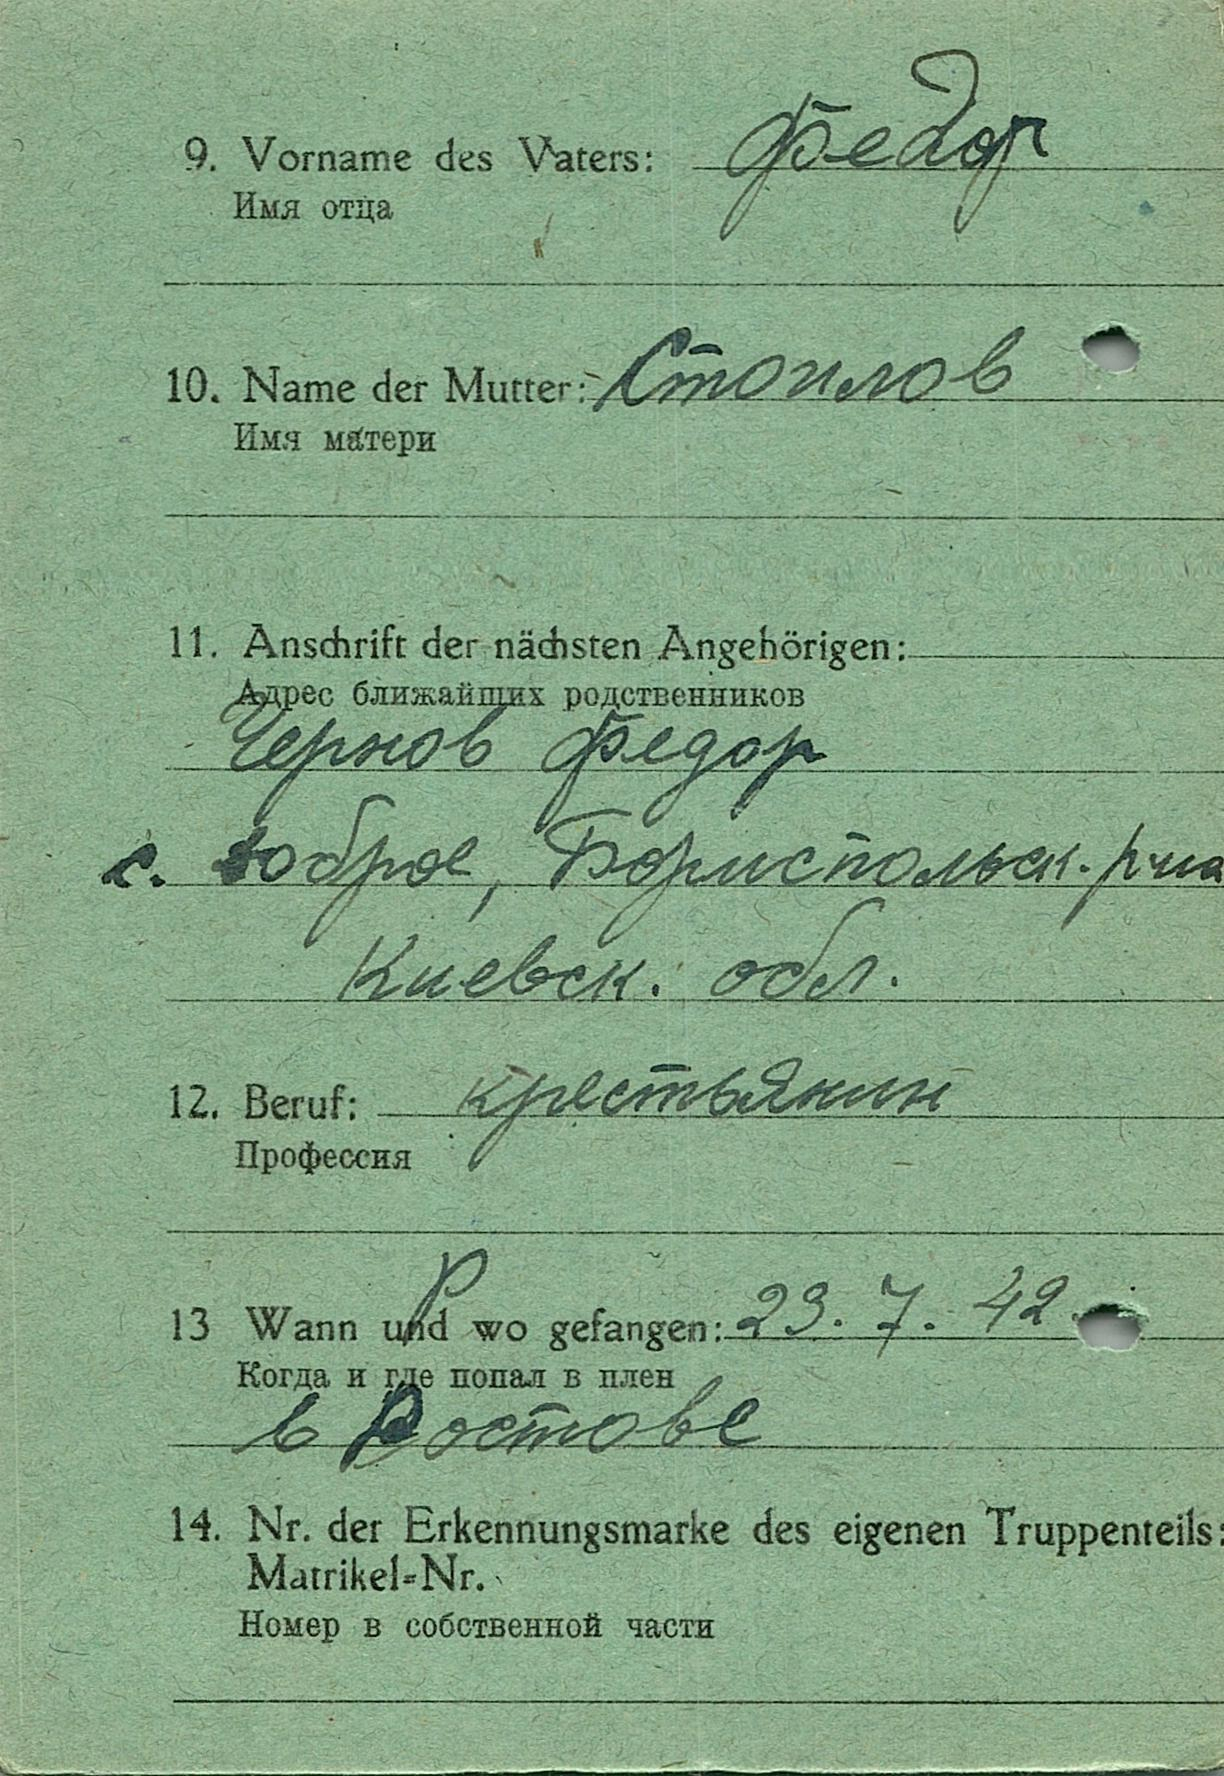 9. Vorname des Vaters: Федор
Имя отца
10. Name der Mutter: Стоилов
Имя матери
11. Anschrift der nächsten Angehörigen:
Адрес ближайших родственников
Чернов Федор
с. Доброе, Бориспольск. р-на
Киевск. обл.
12. Beruf: крестьянин
Профессия
Р
13 Wann und wo gefangen: 23. 7. 42.
Когда и где попал в плен
в Ростове
14. Nr. der Erkennungsmarke des eigenen Truppenteils:
Matrikel-Nr.
Номер в собственной части